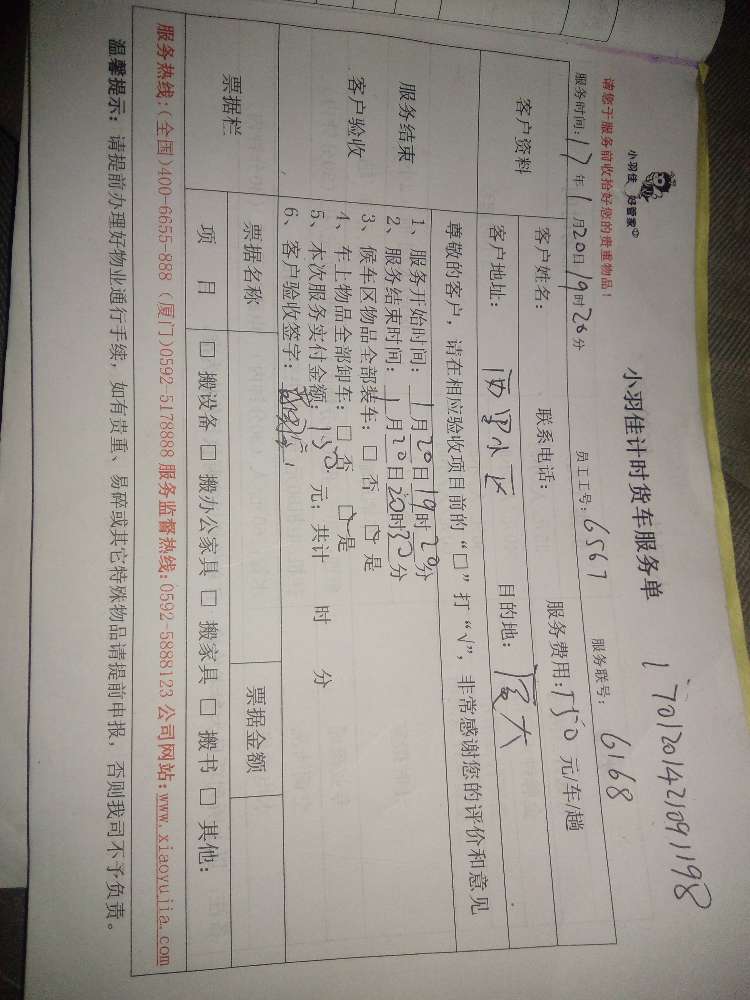 小羽佳 好管家
请您于服务前收拾好您的贵重物品！
小羽佳计时货车服务单
1701201421091198
服务时间：17年1月20日19时20分 员工工号：6567 服务联号：6168
客户资料
客户姓名： 联系电话： 服务费用：150元/车/趟
客户地址： 西 小区 目的地：厦大
尊敬的客户，请在相应验收项目前的“□”打“√”，非常感谢您的评价和意见
服务结束
客户验收
1、服务开始时间：1月20日19时20分
2、服务结束时间：1月20日20时30分
3、候车区物品全部装车：□ 否 □ 是
4、车上物品全部卸车：□ 否 □ 是
5、本次服务实付金额：150元；共计 时 分
6、客户验收签字：
票据栏
票据名称 票据金额
项 目 □ 搬设备 □ 搬办公家具 □ 搬家具 □ 搬书 □ 其他：
服务热线：(全国)400-6655-888 (厦门)0592-5178888 服务监督热线：0592-5888123 公司网站：www.xiaoyujia.com
温馨提示：请提前办理好物业通行手续，如有贵重、易碎或其它特殊物品请提前申报，否则我司不予负责。